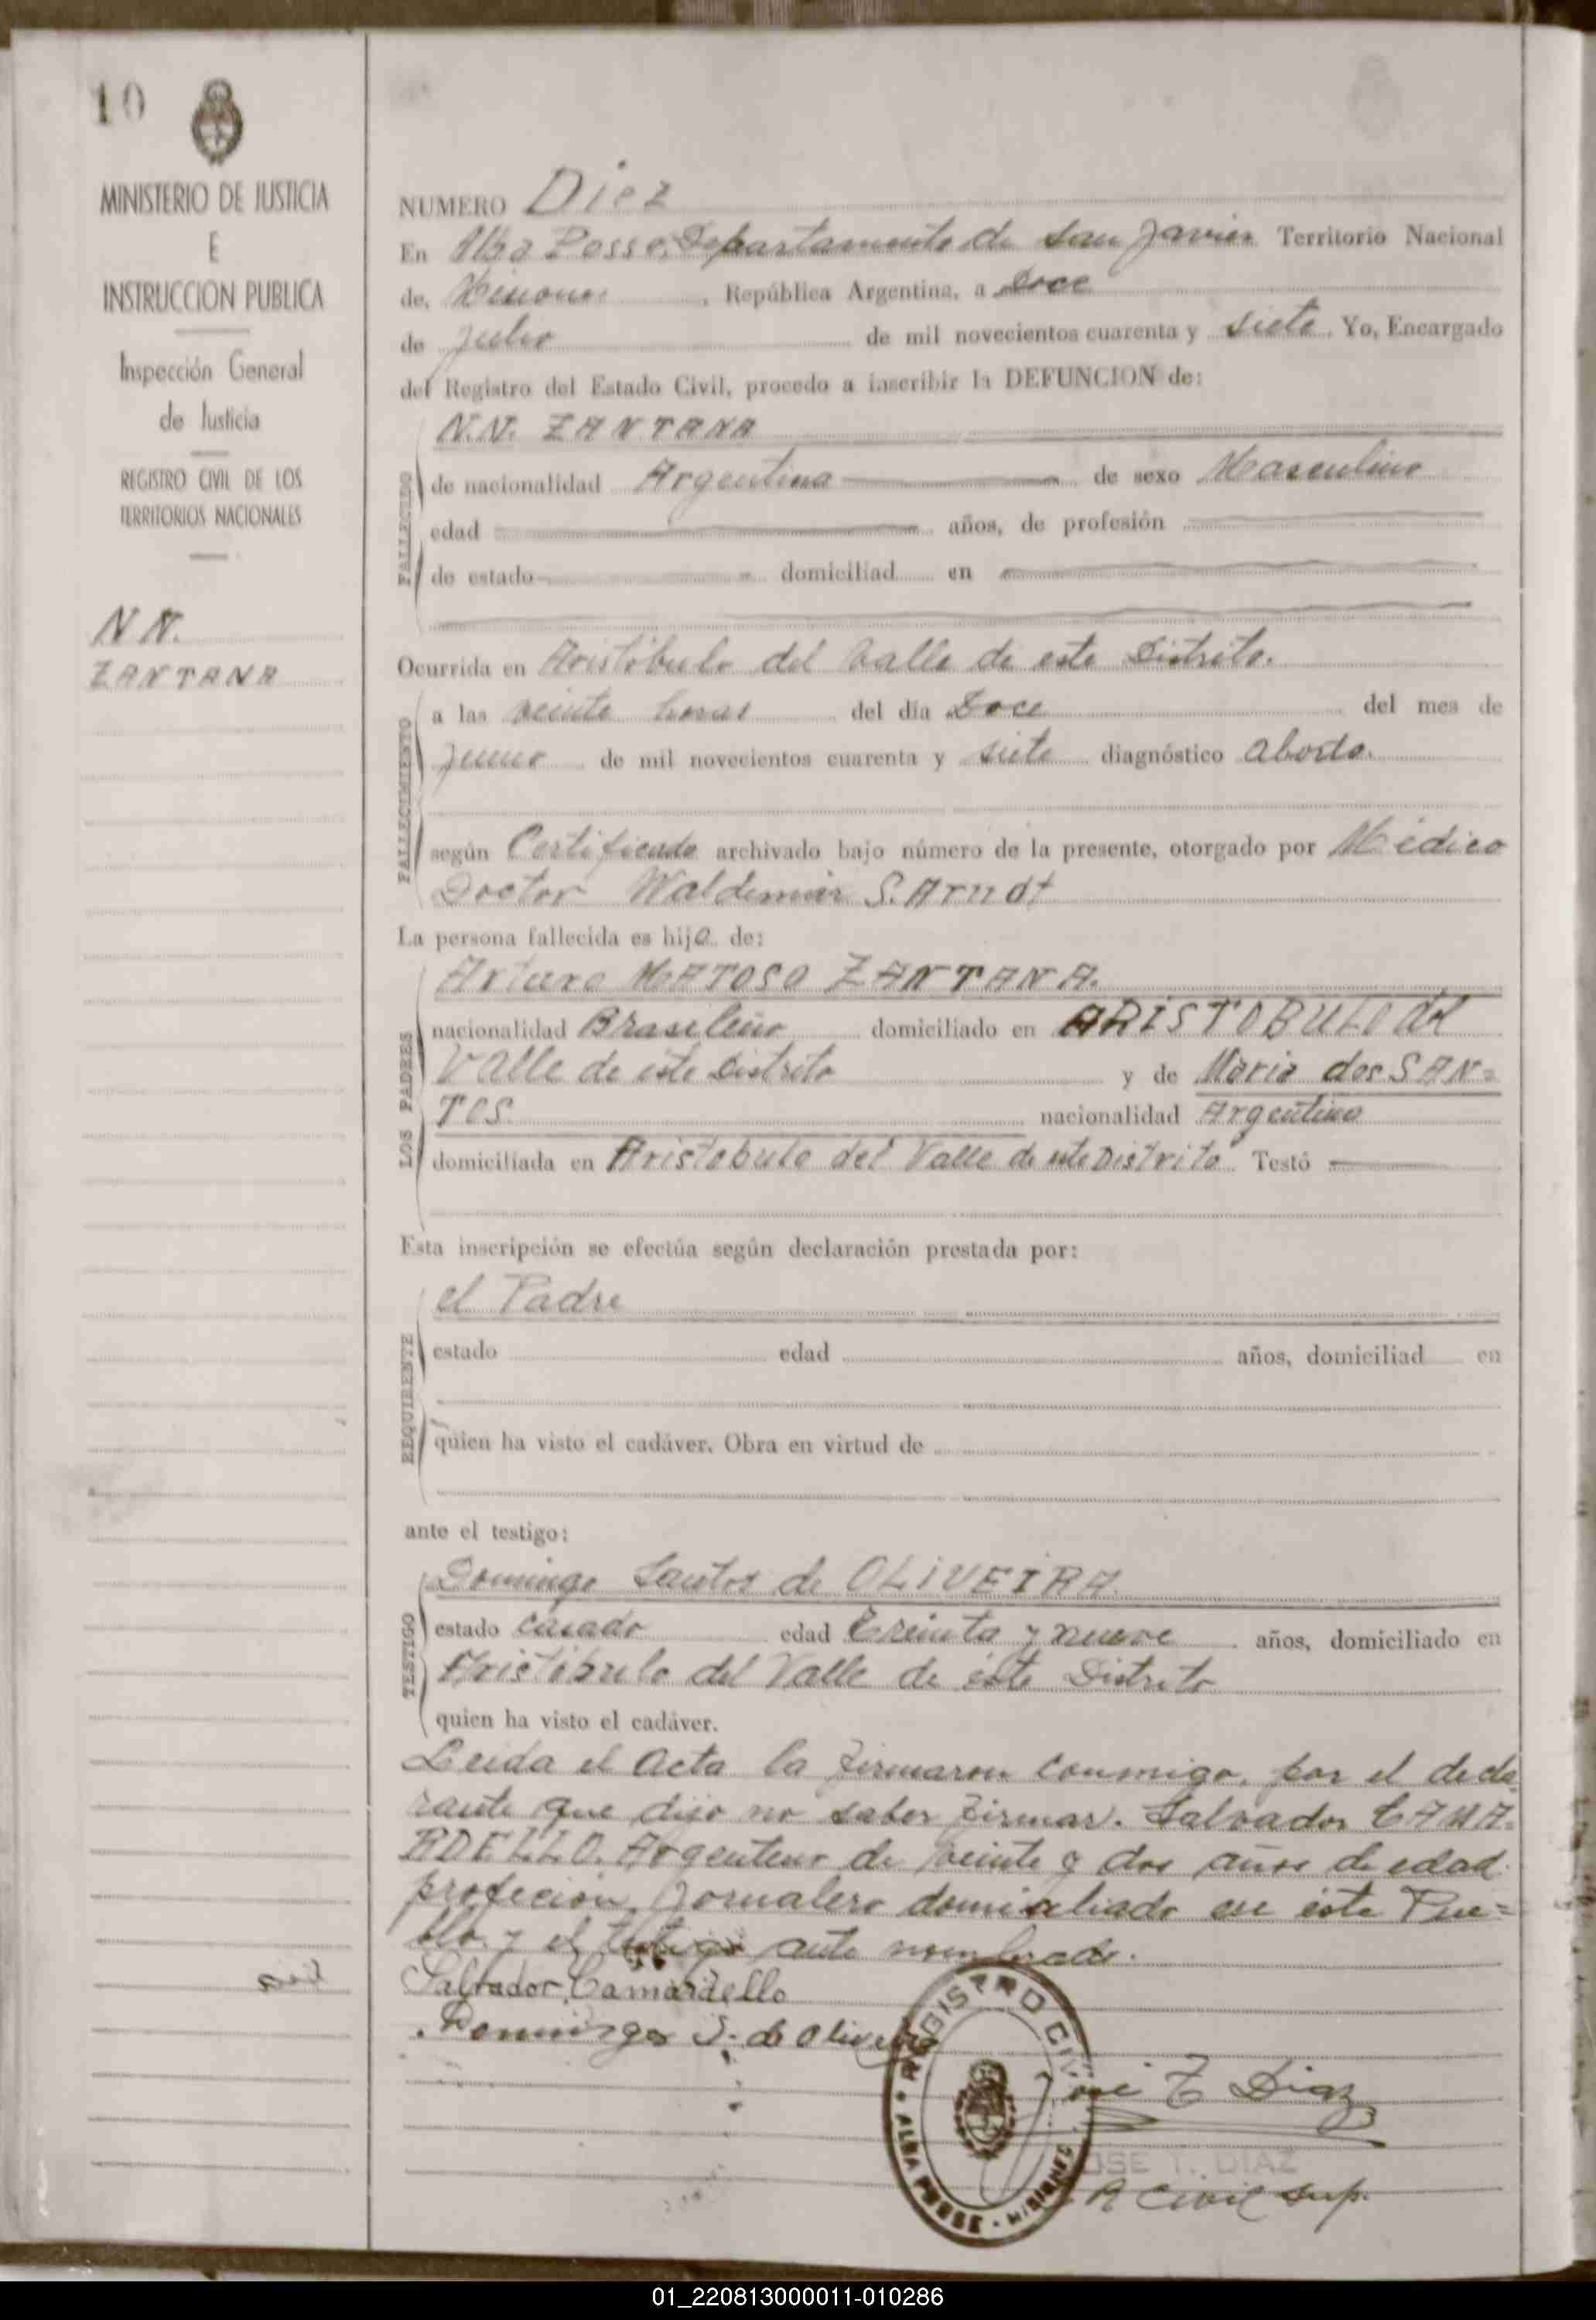 10
MINISTERIO DE JUSTICIA
E
INSTRUCCION PUBLICA
Inspección General
de Justicia
REGISTRO CIVIL DE LOS
TERRITORIOS NACIONALES
N N.
ZANTANA
NUMERO Diez
En Alba Posse, Departamento de San Javier Territorio Nacional
de, Misiones, República Argentina, a Doce
de Julio de mil novecientos cuarenta y siete. Yo, Encargado
del Registro del Estado Civil, procedo a inscribir la DEFUNCION de:
N.N. ZANTANA
FALLECIDO
de nacionalidad Argentina de sexo Masculino
edad años, de profesión
de estado domiciliad en
Ocurrida en Aristóbulo del Valle de este Distrito.
FALLECIMIENTO
a las veinte horas del día Doce del mes de
Junio de mil novecientos cuarenta y siete diagnóstico aborto.
según Certificado archivado bajo número de la presente, otorgado por Médico
Doctor Waldemar S. Arndt
La persona fallecida es hijo de:
LOS PADRES
Arturo MATOSO ZANTANA.
nacionalidad Brasileño domiciliado en ARISTOBULO del
Valle de este Distrito y de Maria dos SAN=
TOS. nacionalidad Argentina
domiciliada en Aristobulo del Valle de este Distrito. Testó
Esta inscripción se efectúa según declaración prestada por:
REQUIRENTE
el Padre
estado edad años, domiciliad en
quien ha visto el cadáver. Obra en virtud de
ante el testigo:
TESTIGO
Domingo Santos de OLIVEIRA
estado casado edad treinta y nueve años, domiciliado en
Aristóbulo del Valle de éste Distrito
quien ha visto el cadáver.
Leida el acta la firmaron conmigo, por el decla
rante que dijo no saber firmar. Salvador CAMA-
RDELLO. Argentino de veinte y dos años de edad
profecion Jornalero domiciliado en éste Pue=
blo. y el testigo ante nombrado.
Salvador Camardello
Domingos S. de Oliveira
REGISTRO CIVIL
ALBA POSSE - MISIONES
José T. Diaz
JOSE T. DIAZ
R Civil Sup.
01_220813000011-010286